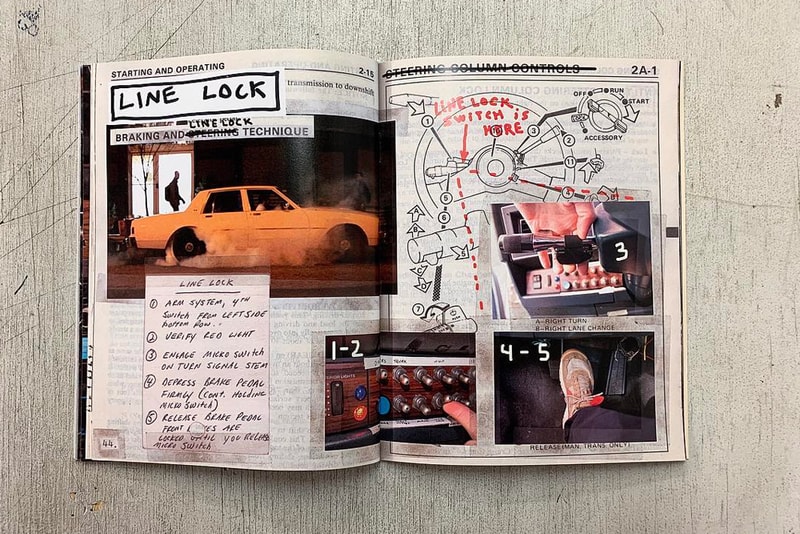 STARTING AND OPERATING
2-15
LINE LOCK
transmission to downshift
LINE LOCK
BRAKING AND STEERING TECHNIQUE
LINE LOCK
① ARM SYSTEM, 4TH
SWITCH FROM LEFT SIDE
BOTTOM ROW..
② VERIFY RED LIGHT
③ ENGAGE MICRO SWITCH
ON TURN SIGNAL STEM
④ DEPRESS BRAKE PEDAL
FIRMLY (CONT. HOLDING
MICRO SWITCH)
⑤ RELEASE BRAKE PEDAL
FRONT ARE
LOCKED UNTIL YOU RELEASE
MICRO SWITCH
44.
1-2
STEERING COLUMN CONTROLS
2A-1
LINE LOCK
SWITCH IS
HERE
OFF
RUN
START
LOCK
ACCESSORY
1
3
2
11
4
5
6
A
B
C
D
7
3
A-RIGHT TURN
B-RIGHT LANE CHANGE
4-5
RELEASE (MAN. TRANS ONLY)